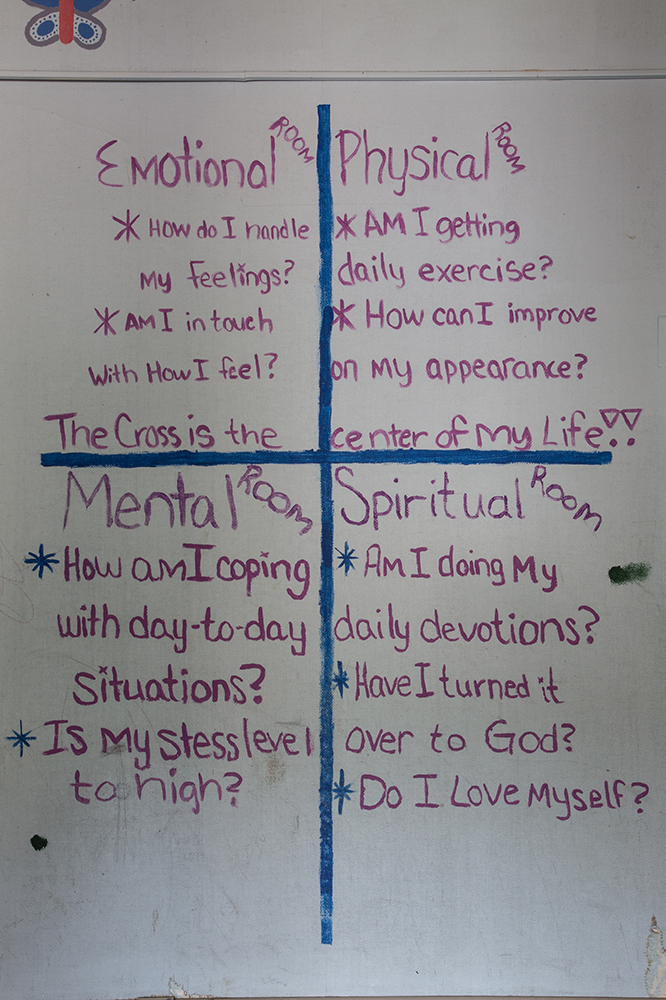 Emotional ROOM
* How do I handle
My feelings?
* AM I in touch
With How I feel?
Physical ROOM
* AM I getting
daily exercise?
* How can I improve
on My appearance?
The Cross is the center of My Life!!
Mental ROOM
* How am I coping
with day-to-day
situations?
* Is My stess level
to high?
Spiritual ROOM
* Am I doing My
daily devotions?
* Have I turned it
over to God?
* Do I Love Myself?